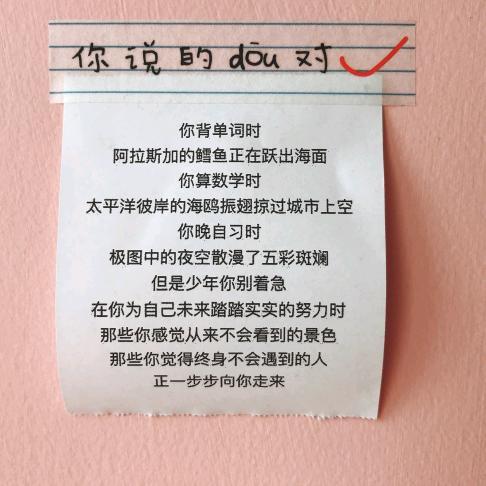 你说的dōu对
你背单词时
阿拉斯加的鳕鱼正在跃出海面
你算数学时
太平洋彼岸的海鸥振翅掠过城市上空
你晚自习时
极图中的夜空散漫了五彩斑斓
但是少年你别着急
在你为自己未来踏踏实实的努力时
那些你感觉从来不会看到的景色
那些你觉得终身不会遇到的人
正一步步向你走来